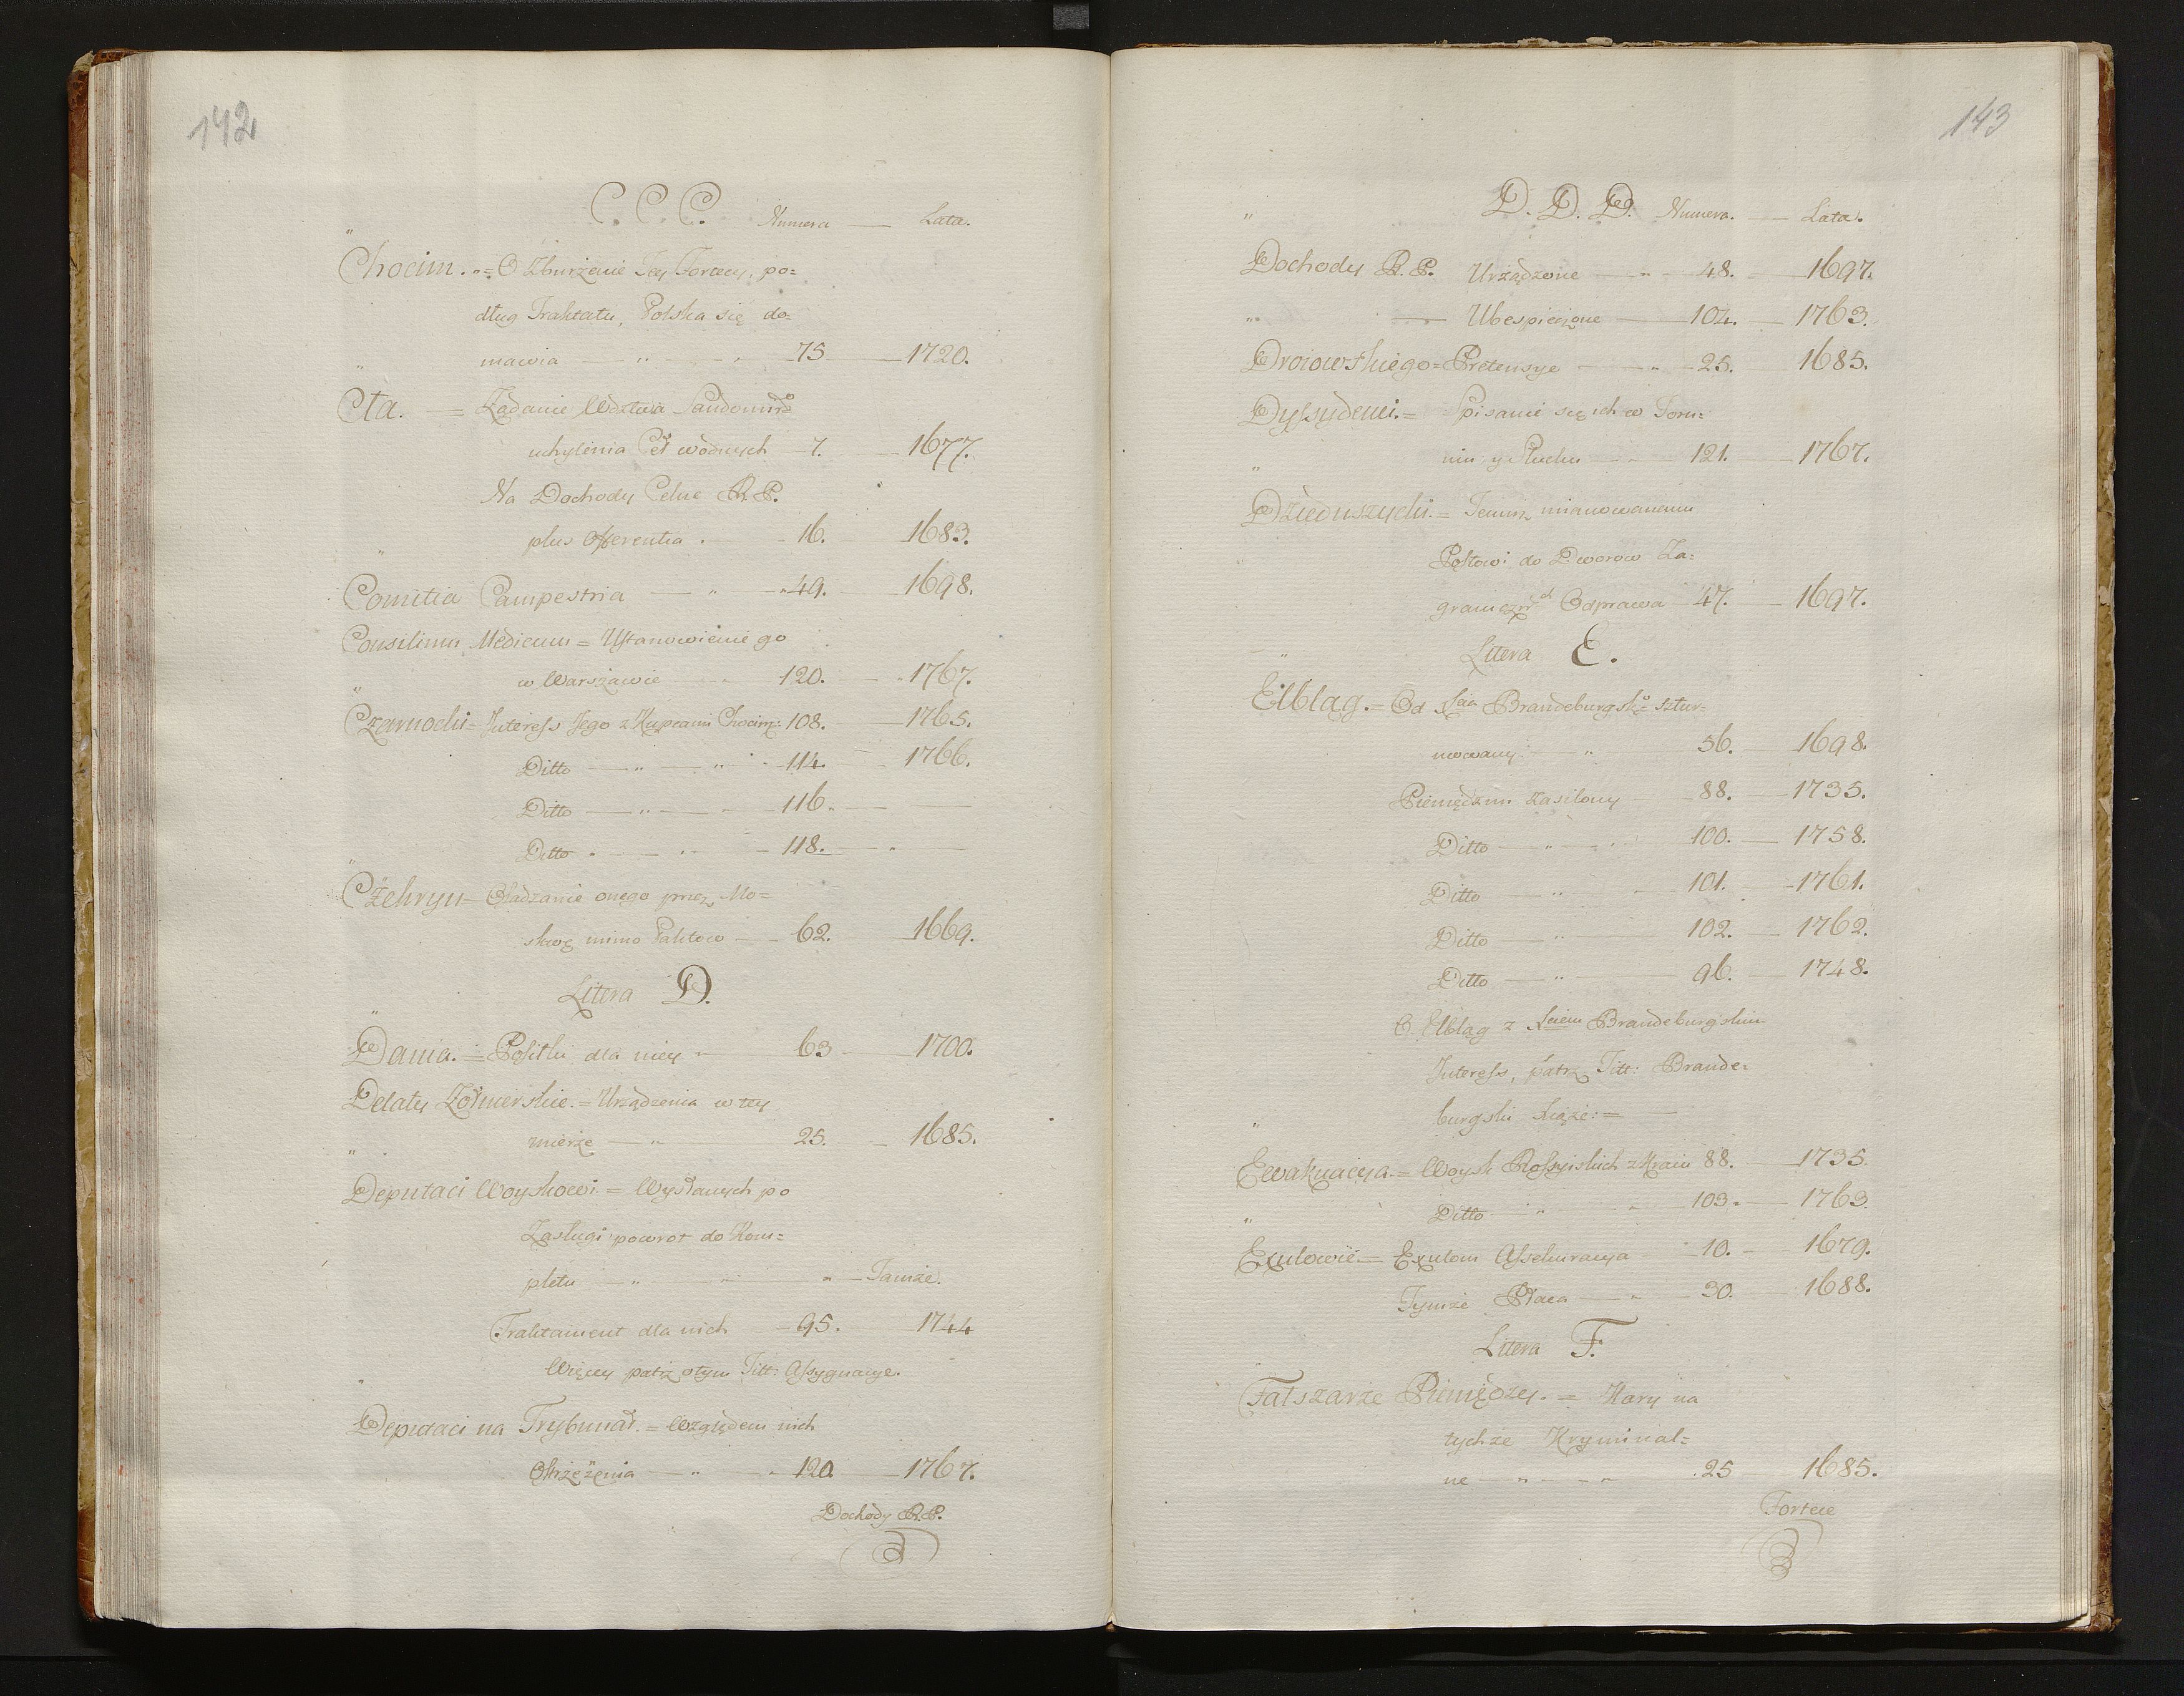 142
C. C. C. Numera — Lata.
Chocim. = O Zburzenie Tey Fortecy, po=
dług Traktatu, Polska się do=
mawia — " — 75 — 1720.
Cła. = Żądanie Wdztwa Sandomirs:
uchylenia Ceł wodnych — 7. — 1677.
Na Dochody Celne R. P.
plus Offerentia . — 16. — 1683.
Comitia Campestria — " — 49. — 1698.
Consilium Medicum = Ustanowienie go
w Warszawie — 120. — 1767.
Czarnocki = Interess Jego z Kupcami Chocim: 108. — 1765.
Ditto — " — " — 114. — 1766.
Ditto — " — 116. —
Ditto — " — 118. — " —
Czehryn = Osadzanie onego przez Mo=
skwę mimo Paktow — 62. — 1669.
Litera D.
Dania. = Posiłki dla niey — 63 — 1700.
Delaty Żołnierskie. = Urządzenia w tey
mierze — " — 25. — 1685.
Deputaci Woyskowi = Wysłanych po
Zasługi powrot do Kom=
pletu — " — " — Tamże.
Traktament dla nich — 95. — 1744
Więcey patrz o tym Titt: Assygnacye.
Deputaci na Trybunał. = Względem nich
Ostrzeżenia — " — 120. — 1767.
Dochody R. P.
143
D. D. D. Numera. — Lata.
Dochody R. P. Urządzone — " — 48. — 1697.
" — Ubespieczone — 104. — 1763.
Droiowskiego = Pretensye — " — 25. 1685.
Dyssydenci. = Spisanie się ich w Toru=
niu y Słucku — 121. — 1767.
Dzieduszycki. = Temuż mianowanemu
Posłowi do Dworow Za=
granicznch Odprawa 47. — 1697.
Litera E.
Elbląg. = Od Xcia Brandeburgsk: sztur=
mowany — " — 56. — 1698.
Pieniędzmi zasilony — 88. — 1735.
Ditto — " — 100. — 1758.
Ditto — " — 101. — 1761.
Ditto — " — 102. — 1762.
Ditto — " — 96. — 1748.
O Elbląg z Xciem Brandeburgskim
Interess, patrz Titt: Brande=
burgski Xiąże: = —
Ewakuacya. = Woysk Rossyiskich z Kraiu 88. — 1735.
Ditto — " — 103. — 1763.
Exulowie = Exulom Assekuracya — 10. — 1679.
Tymże Płaca — " — 30. — 1688.
Litera F.
Fałszarze Pieniędzy. = Kary na
tychże Kryminal=
ne — " — " — 25 — 1685.
Fortece